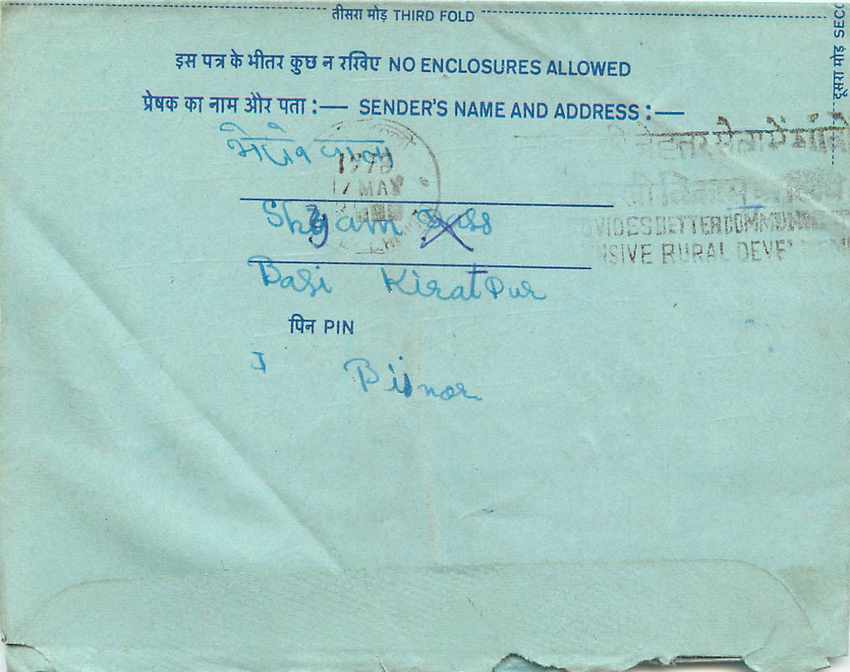 तीसरा मोड़ THIRD FOLD
दूसरा मोड़ SECO
इस पत्र के भीतर कुछ न रखिए NO ENCLOSURES ALLOWED
प्रेषक का नाम और पता :— SENDER'S NAME AND ADDRESS :—
17 MAY
Shyam Dass
OVIDES BETTER COMMUN
NSIVE RURAL DEVE
Basi Kiratpur
पिन PIN
Bijnor